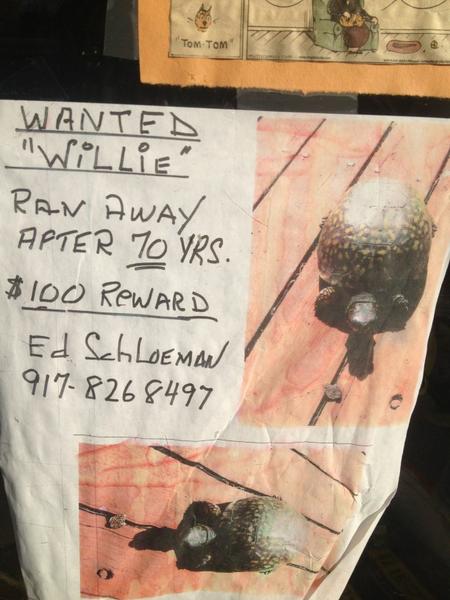 "TOM-TOM"
WANTED
"WiLLiE"
RAN AWAY
AFTER 70 YRS.
$100 REWARD
Ed SchLOEMAN
917-826 8497